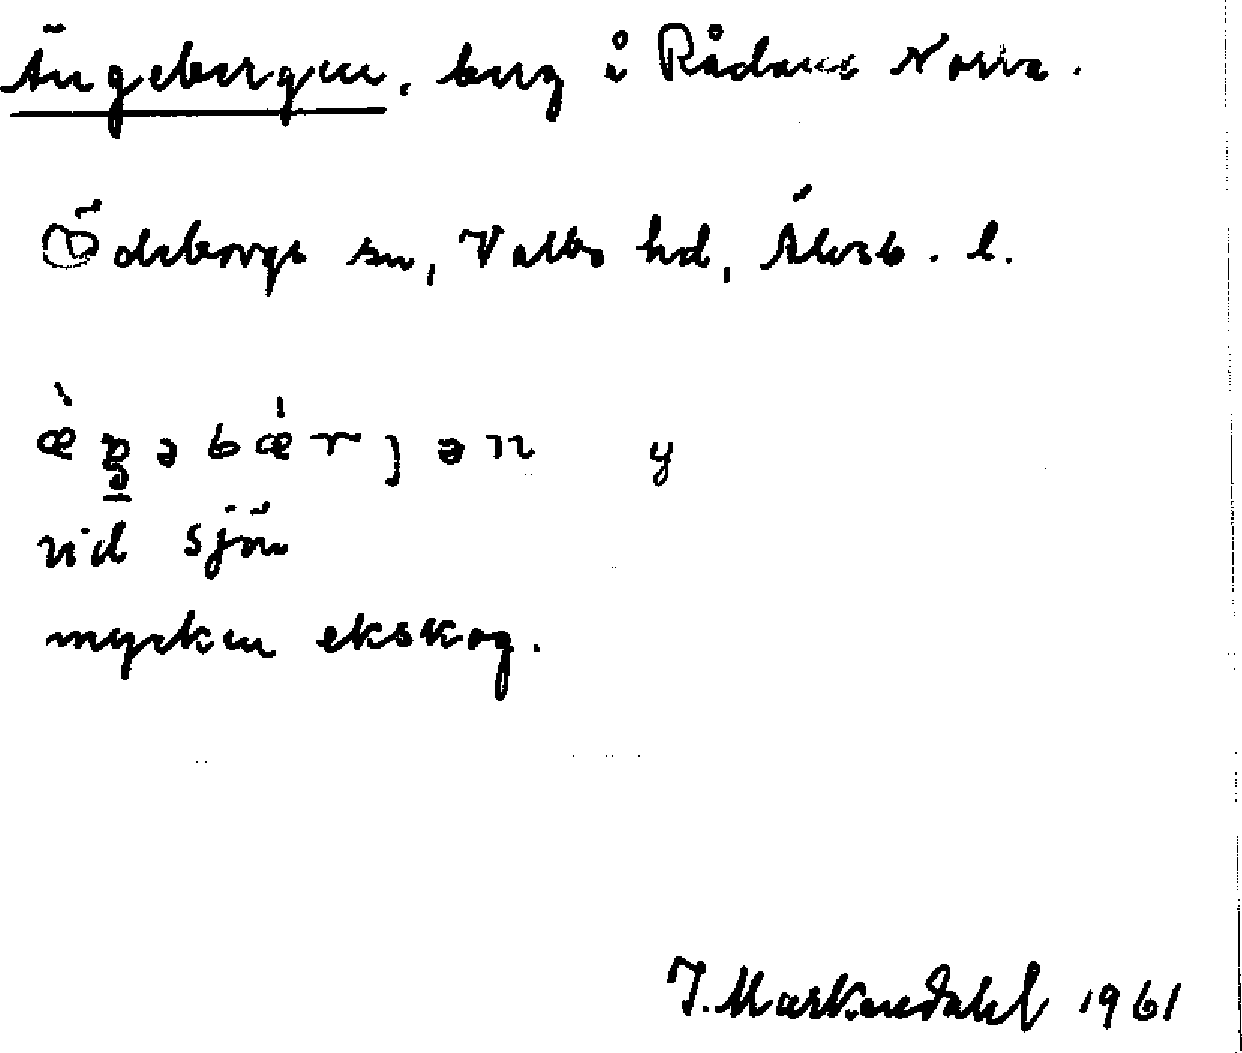 Ängebergen, berg i Rådane Norra.
Ödeborgs sn, Valbo hd, Älvsb. l.
æ̀ŋəbæ̍rjən y
vid sjön
mycken ekskog.
J. Markendahl 1961